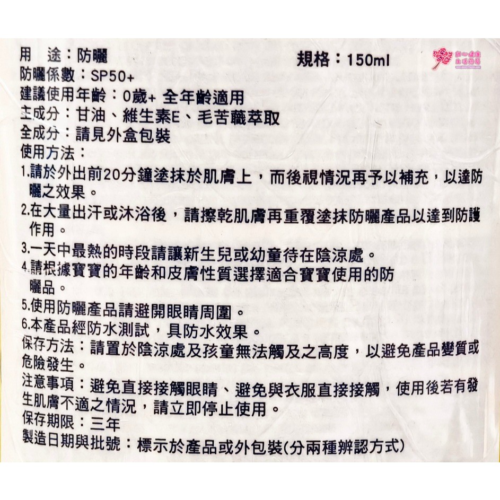 用　途：防曬
規格：150ml
防曬係數：SP50+
建議使用年齡：0歲+ 全年齡適用
主成分：甘油、維生素E、毛苦蘵萃取
全成分：請見外盒包裝
使用方法：
1.請於外出前20分鐘塗抹於肌膚上，而後視情況再予以補充，以達防
曬之效果。
2.在大量出汗或沐浴後，請擦乾肌膚再重覆塗抹防曬產品以達到防護
作用。
3.一天中最熱的時段請讓新生兒或幼童待在陰涼處。
4.請根據寶寶的年齡和皮膚性質選擇適合寶寶使用的防
曬品。
5.使用防曬產品請避開眼睛周圍。
6.本產品經防水測試，具防水效果。
保存方法：請置於陰涼處及孩童無法觸及之高度，以避免產品變質或
危險發生。
注意事項：避免直接接觸眼睛、避免與衣服直接接觸，使用後若有發
生肌膚不適之情況，請立即停止使用。
保存期限：三年
製造日期與批號：標示於產品或外包裝(分兩種辨認方式)